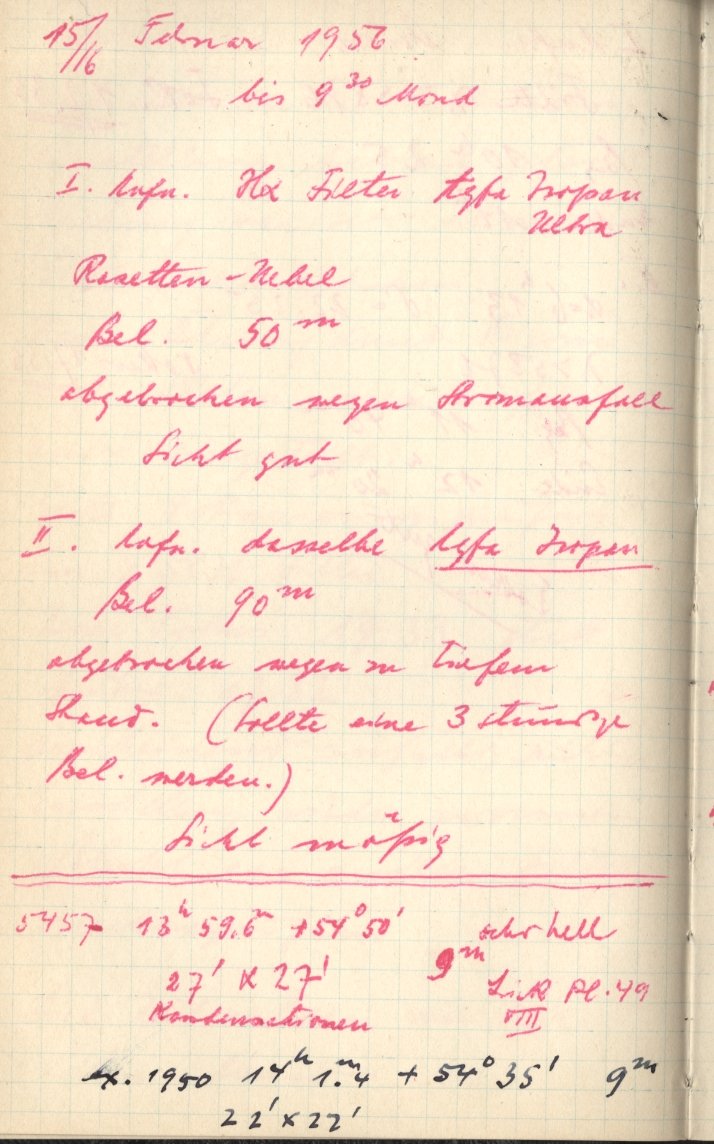 15/16 Februar 1956
bis 9³⁰ Mond
I. Aufn. Hα Filter Agfa Isopan
Ultra
Rosetten-Nebel
Bel. 50ᵐ
abgebrochen wegen Stromausfall
Sicht gut
II. Aufn. dasselbe Agfa Isopan
Bel. 90ᵐ
abgebrochen wegen zu tiefem
Stand. (Sollte eine 3 stündige
Bel. werden.)
Sicht mäßig
5457 13ʰ 59.6ᵐ +54° 50' sehr hell
27' x 27' 9ᵐ Lick Pl. 49
Kondensationen VIII
1950 14ʰ 1.ᵐ4 + 54° 35' 9ᵐ
22' x 22'